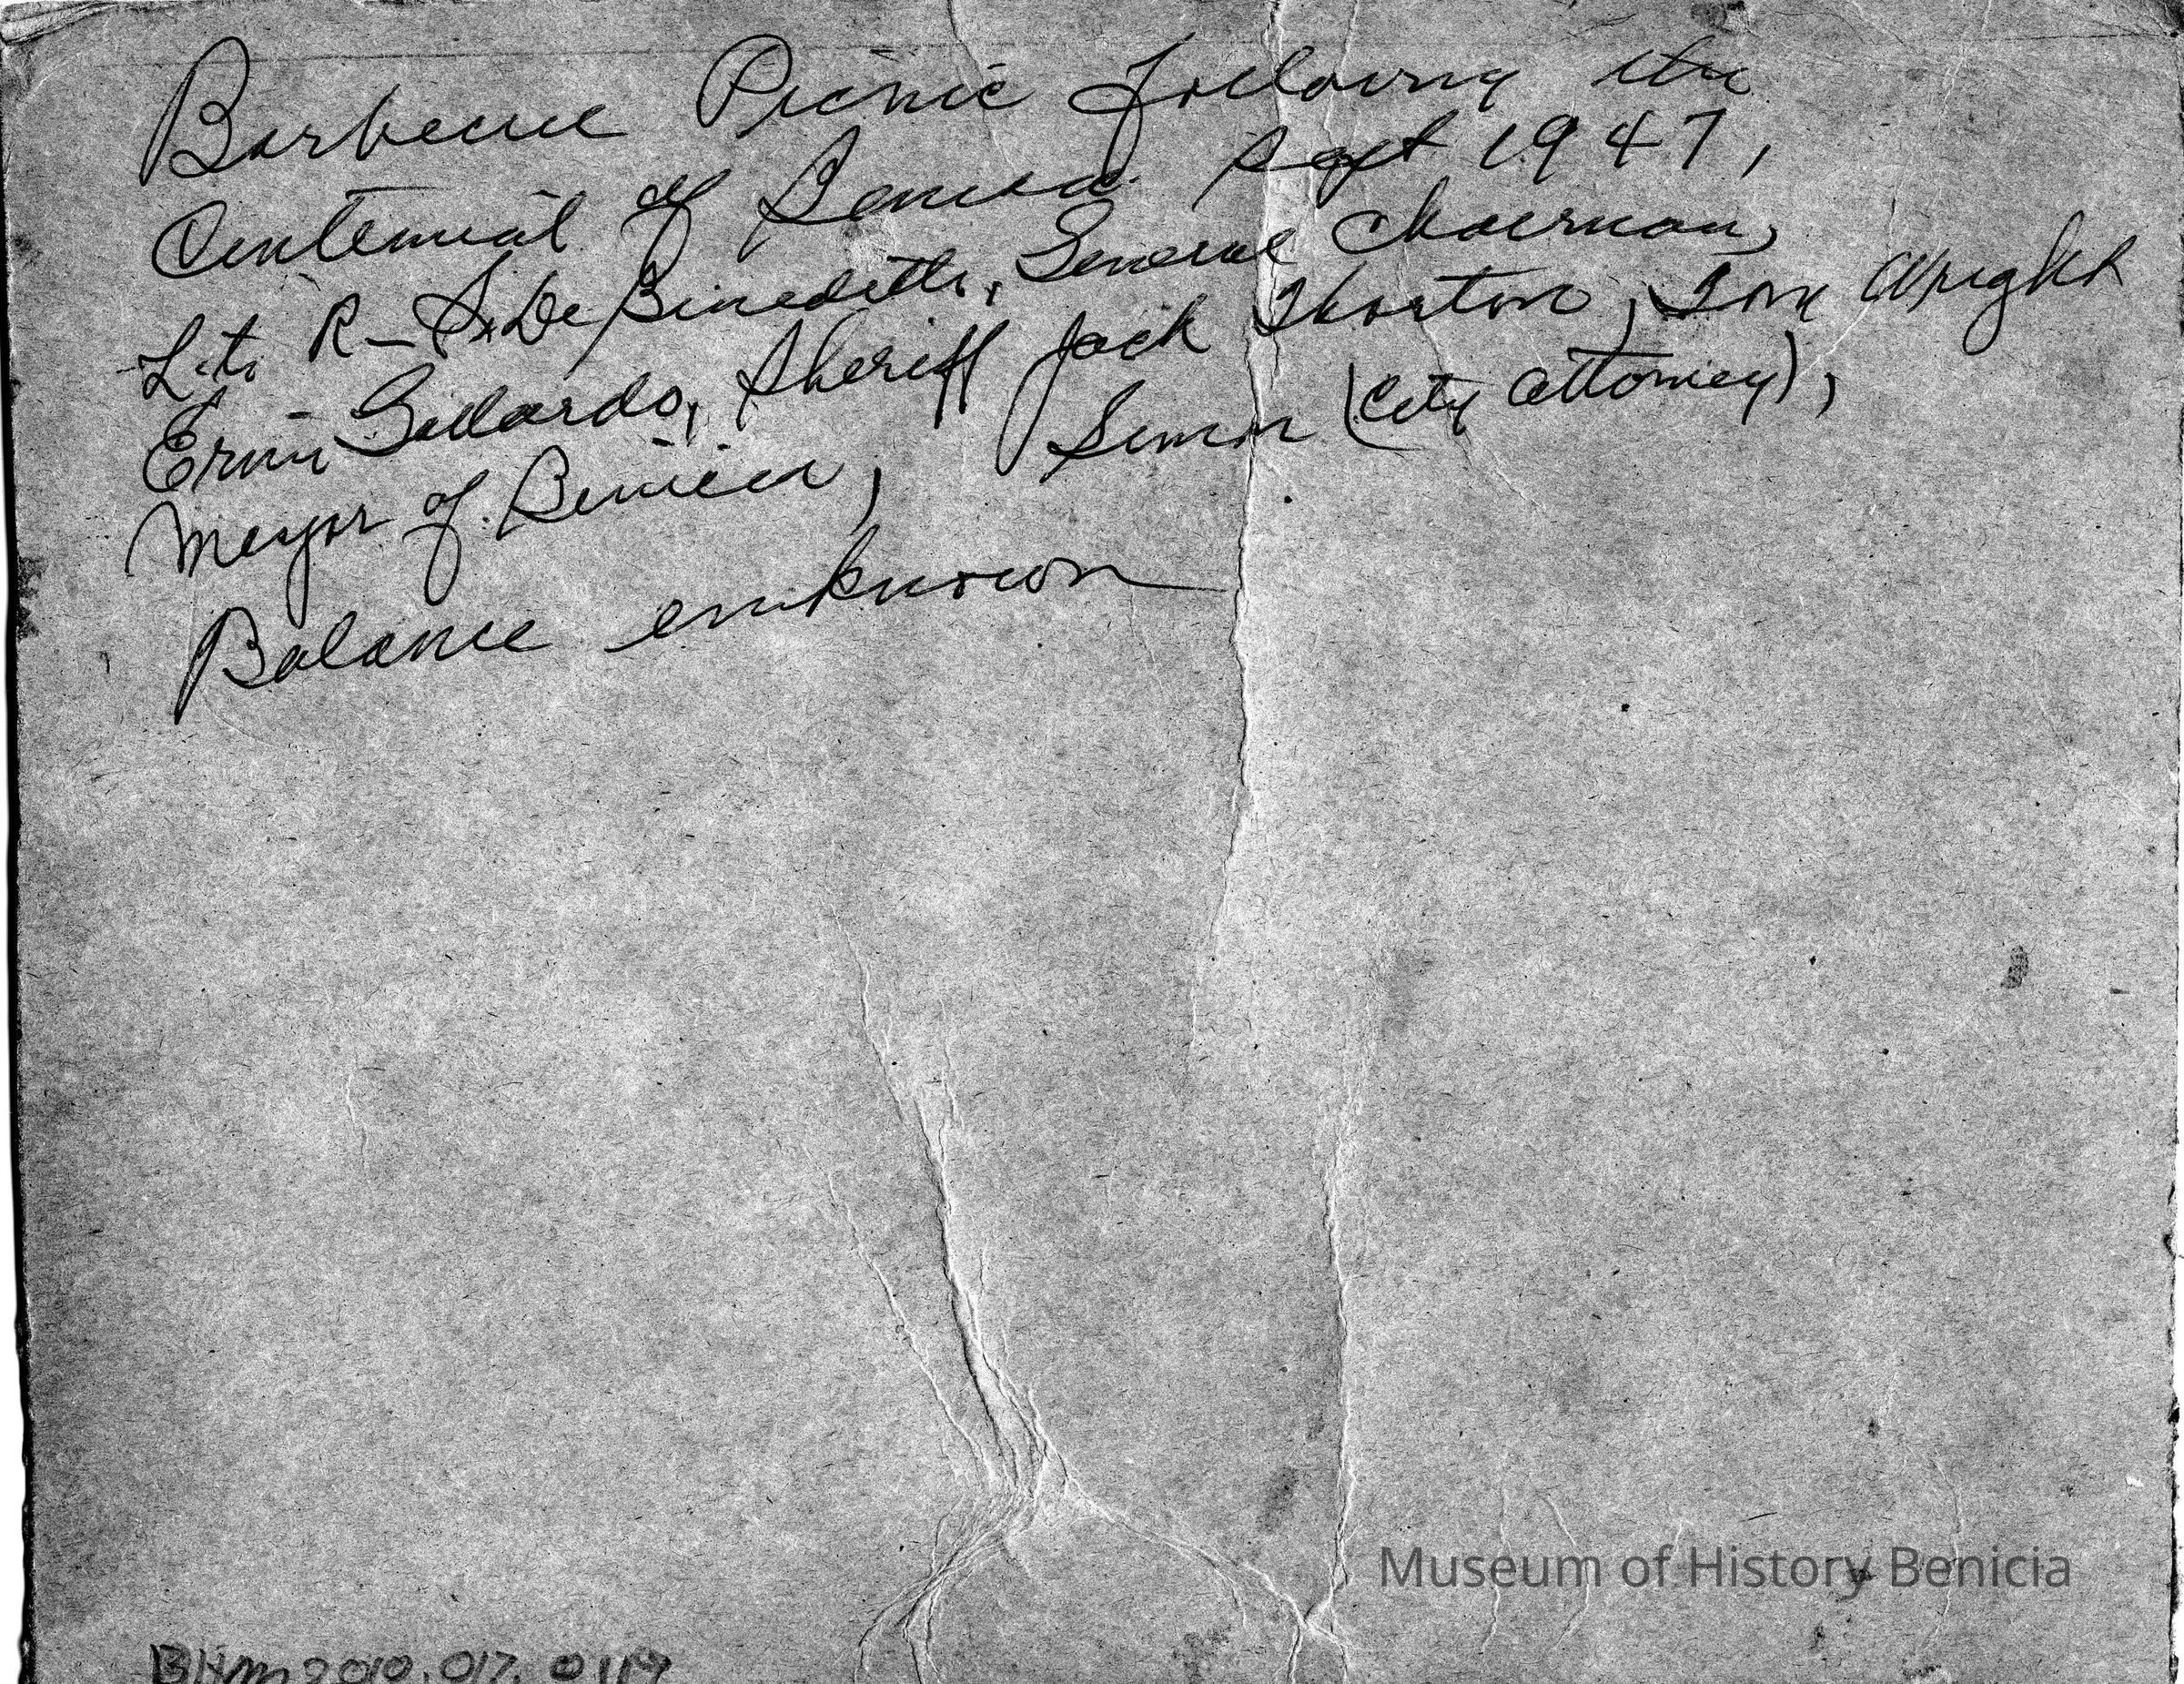 Barbecue Picnic following the
Centennial of Benicia. Sept 1947,
L. to R - S. De Benedetti, General Chairman,
Ernie Gallardo, Sheriff Jack Thornton, Tom Wright
Mayor of Benicia, Simon (City Attorney),
Balance unknown
Museum of History Benicia
BHM2010.017.0119